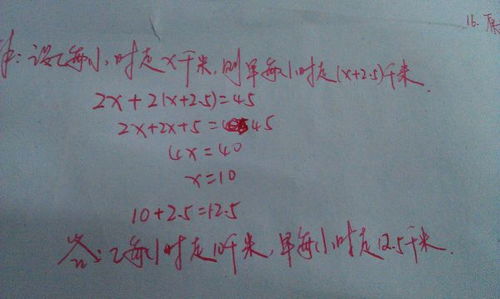 16. 原
解:设乙每小时走x千米,则甲每小时走(x+2.5)千米.
2x+2(x+2.5)=45
2x+2x+5=45
4x=40
x=10
10+2.5=12.5
答:乙每小时走10千米,甲每小时走12.5千米.